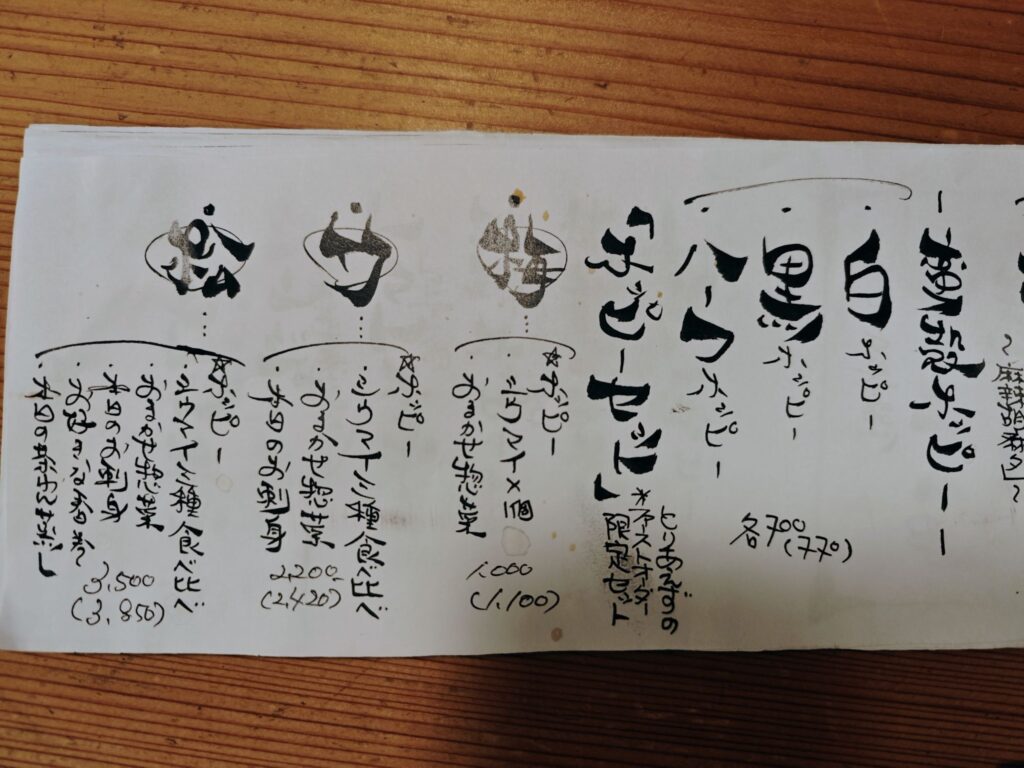 〜麻辣
ホッピー ー
・白ホッピー
・黒ホッピー
・ハーフホッピー
各700
(770)
「ホッピーセット」
とりあえずの
*ファストオーダー
限定セット
・梅…
☆ホッピー
・シウマイ×1個
・おまかせ惣菜
1,000
(1,100)
・竹…
☆ホッピー
・シウマイ三種食べ比べ
・おまかせ惣菜
・本日のお刺身
2,200
(2,420)
・松…
☆ホッピー
・シウマイ三種食べ比べ
・おまかせ惣菜
・本日のお刺身
・春巻
・本日の
3,500
(3,850)